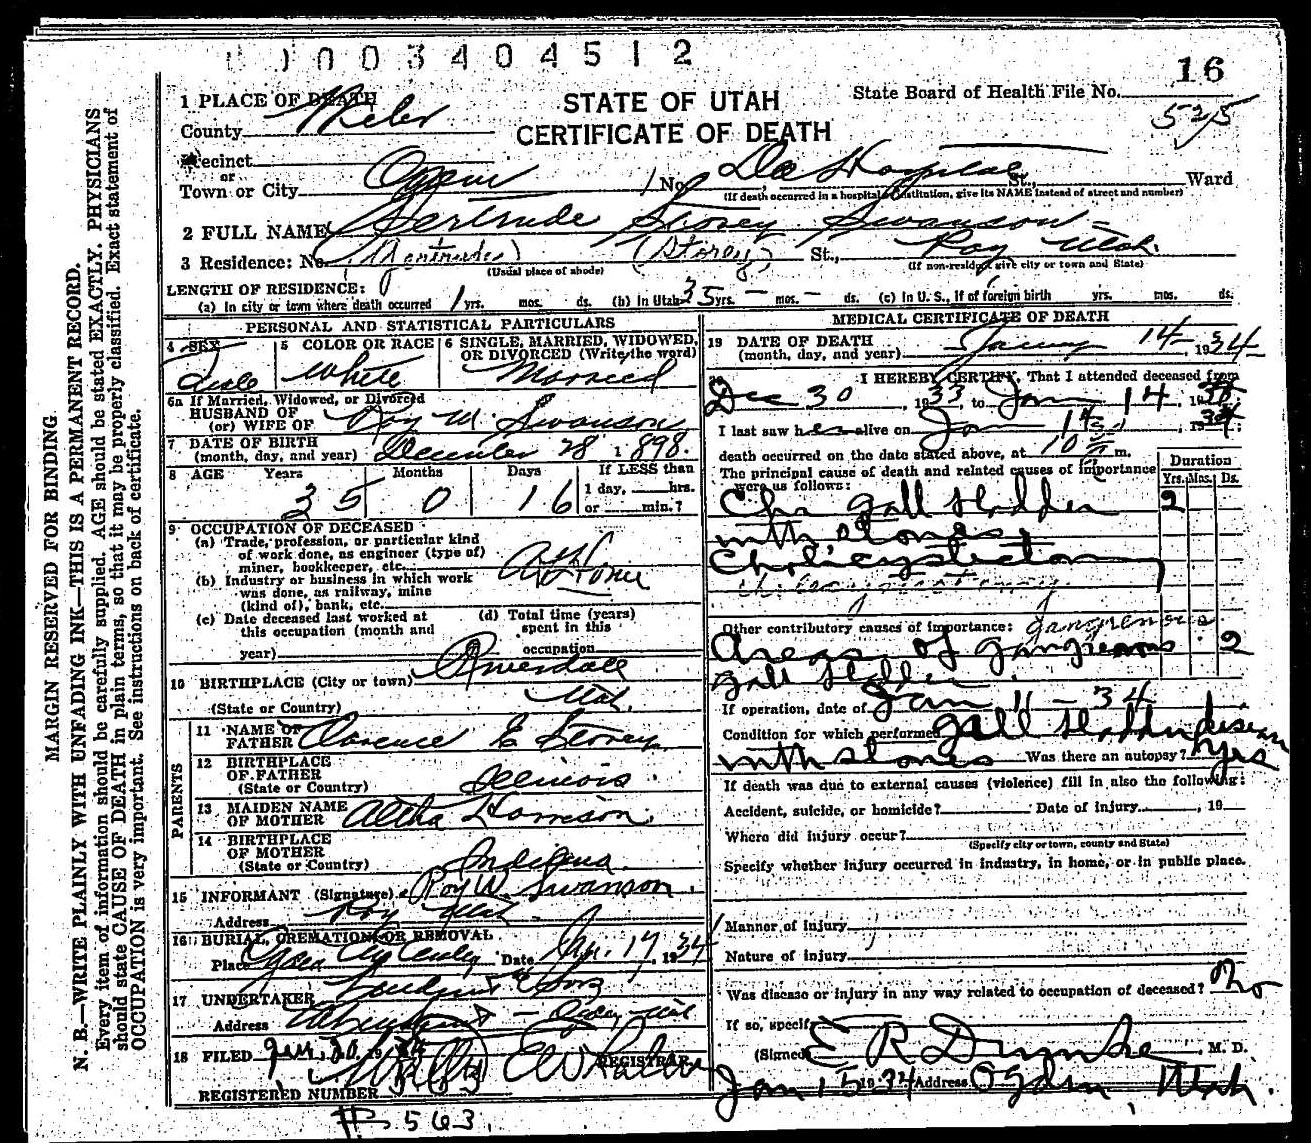 0 0 3 4 0 4 5 1 2
16
STATE OF UTAH
CERTIFICATE OF DEATH
State Board of Health File No.
525
1 PLACE OF DEATH
County Weber
Precinct
or
Town or City Ogden No. Dee Hospital St., Ward
(If death occurred in a hospital or institution, give its NAME instead of street and number)
2 FULL NAME Gertrude Storey Swanson
3 Residence: No. (Gertrude) (Storey) St., Roy Utah.
(Usual place of abode) (If non-resident give city or town and State)
LENGTH OF RESIDENCE:
(a) In city or town where death occurred 1 yrs. mos. ds. (b) In Utah 35 yrs. - mos. - ds. (c) In U. S., if of foreign birth yrs. mos. ds.
PERSONAL AND STATISTICAL PARTICULARS
4 SEX
5 COLOR OR RACE White
6 SINGLE, MARRIED, WIDOWED, OR DIVORCED (Write the word) Married
6a If Married, Widowed, or Divorced
HUSBAND OF
(or) WIFE OF Roy W. Swanson
7 DATE OF BIRTH
(month, day, and year) December 28 1898.
8 AGE Years Months Days If LESS than
35 0 16 1 day, hrs.
or min.?
9 OCCUPATION OF DECEASED
(a) Trade, profession, or particular kind
of work done, as engineer (type of)
miner, bookkeeper, etc. At Home
(b) Industry or business in which work
was done, as railway, mine
(kind of), bank, etc.
(c) Date deceased last worked at
this occupation (month and
year)
(d) Total time (years)
spent in this
occupation
10 BIRTHPLACE (City or town) Riverdale
(State or Country) Utah.
PARENTS
11 NAME OF
FATHER Clarence E Storey
12 BIRTHPLACE
OF FATHER
(State or Country) Illinois.
13 MAIDEN NAME
OF MOTHER
14 BIRTHPLACE
OF MOTHER
(State or Country) Indiana
15 INFORMANT (Signature) Roy W. Swanson.
Address Roy Utah
16 BURIAL, CREMATION, OR REMOVAL
Place Ogden City Date Jan. 17, 1934
17 UNDERTAKER
Address Ogden Utah
18 FILED Jan. 20, 1934
REGISTRAR
REGISTERED NUMBER
563.
MEDICAL CERTIFICATE OF DEATH
19 DATE OF DEATH
(month, day, and year) January 14 - 1934
I HEREBY CERTIFY, That I attended deceased from
Dec 30, 1933, to Jan 14, 1934.
I last saw her alive on Jan 14, 1934;
death occurred on the date stated above, at 10 m.
The principal cause of death and related causes of importance
were as follows:
Duration
Yrs. Mos. Ds.
Chr gall bladder 2
with stones
Cholicystectomy
Other contributory causes of importance: gangrenous
Areas of gangrenous 2
gall bladder.
If operation, date of Jan 11 - 34
Condition for which performed gall bladder disease
with stones Was there an autopsy? Yes
If death was due to external causes (violence) fill in also the following:
Accident, suicide, or homicide? Date of injury , 19
Where did injury occur?
(Specify city or town, county and State)
Specify whether injury occurred in industry, in home, or in public place.
Manner of injury
Nature of injury
Was disease or injury in any way related to occupation of deceased? No
If so, specify
(Signed) E R Dumke M. D.
Jan 15 1934 Address Ogden, Utah.
MARGIN RESERVED FOR BINDING
N. B.—WRITE PLAINLY WITH UNFADING INK—THIS IS A PERMANENT RECORD.
Every item of information should be carefully supplied. AGE should be stated EXACTLY. PHYSICIANS
should state CAUSE OF DEATH in plain terms, so that it may be properly classified. Exact statement of
OCCUPATION is very important. See instructions on back of certificate.